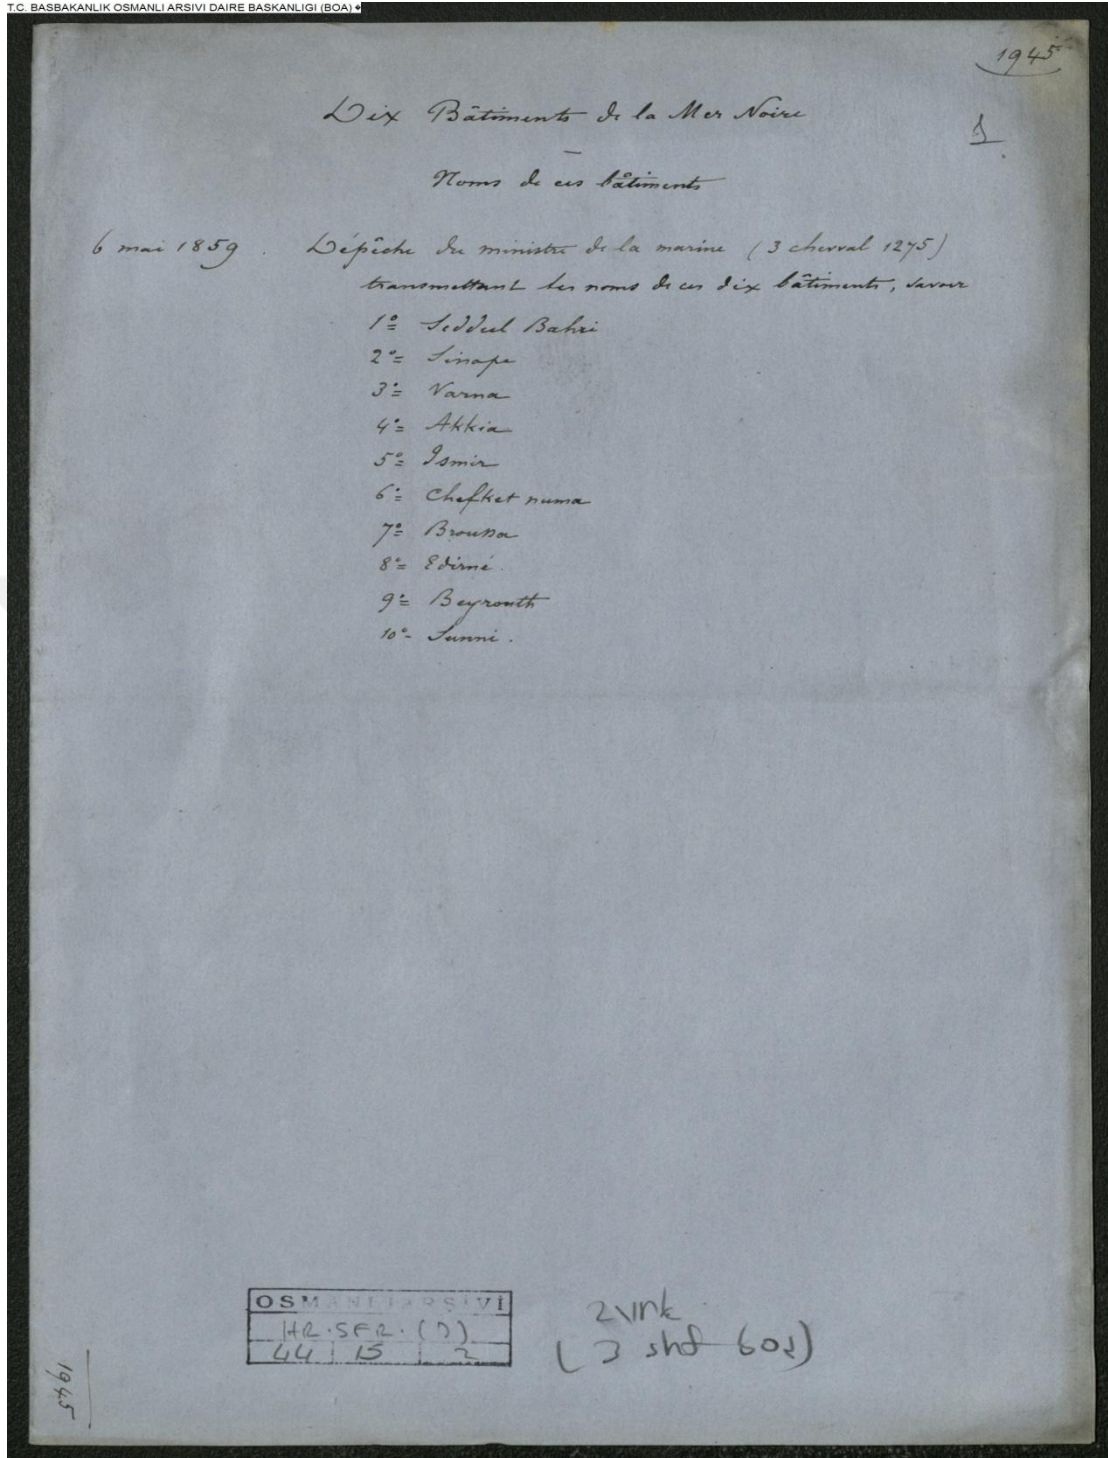 T.C. BASBAKANLIK OSMANLI ARSIVI DAIRE BASKANLIGI (BOA)
1945
1
Dix Bâtiments de la Mer Noire
—
Noms de ces bâtiments
6 mai 1859. Dépêche du ministre de la marine (3 chewal 1275)
transmettant les noms de ces dix bâtiments, savoir
1º= Seddul Bahri
2º= Sinope
3º= Varna
4º= Akkia
5º= Ismir
6º= Chefket numa
7º= Broussa
8º= Edirné.
9º= Beyrouth
10º- Sunni.
OSMANLI ARŞİVİ
HR.SFR.(
44 15 2
2 vrk
(3 shf boş)
1945